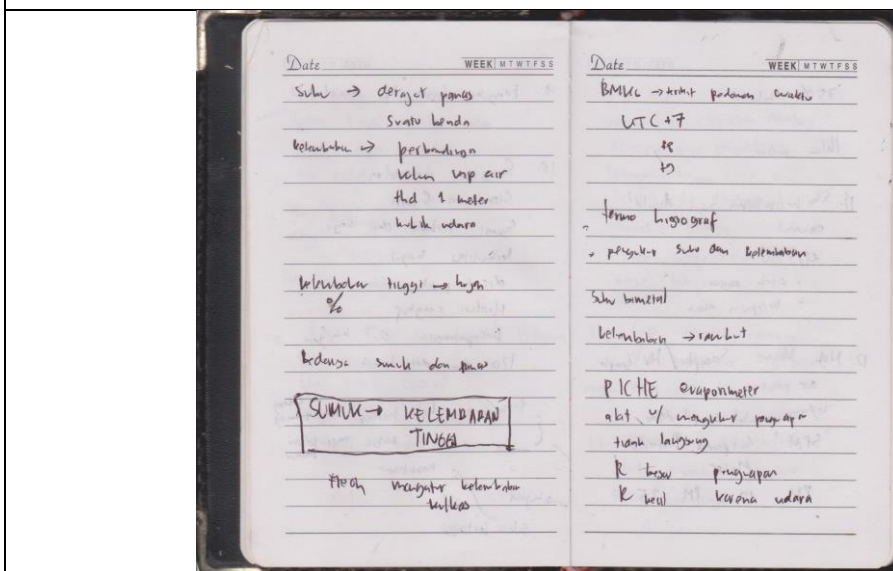 Date WEEK M T W T F S S
Suhu → derajat panas
suatu benda
kelembaban → perbandingan
uap air
thd 1 meter
kubik udara
kelembaban tinggi → hujan
%
Bedanya sumuk dan panas
SUMUK → KELEMBABAN
TINGGI
mengatur kelembaban
kulkas
Date WEEK M T W T F S S
BMKG → terkait padanan waktu
UTC +7
+8
+9
termo higrograf
pengukur suhu dan kelembaban
Suhu bimetal
kelembaban → rambut
PICHE evaporimeter
alat u/ mengukur penguapan
tidak langsung
R besar penguapan
R kecil karena udara